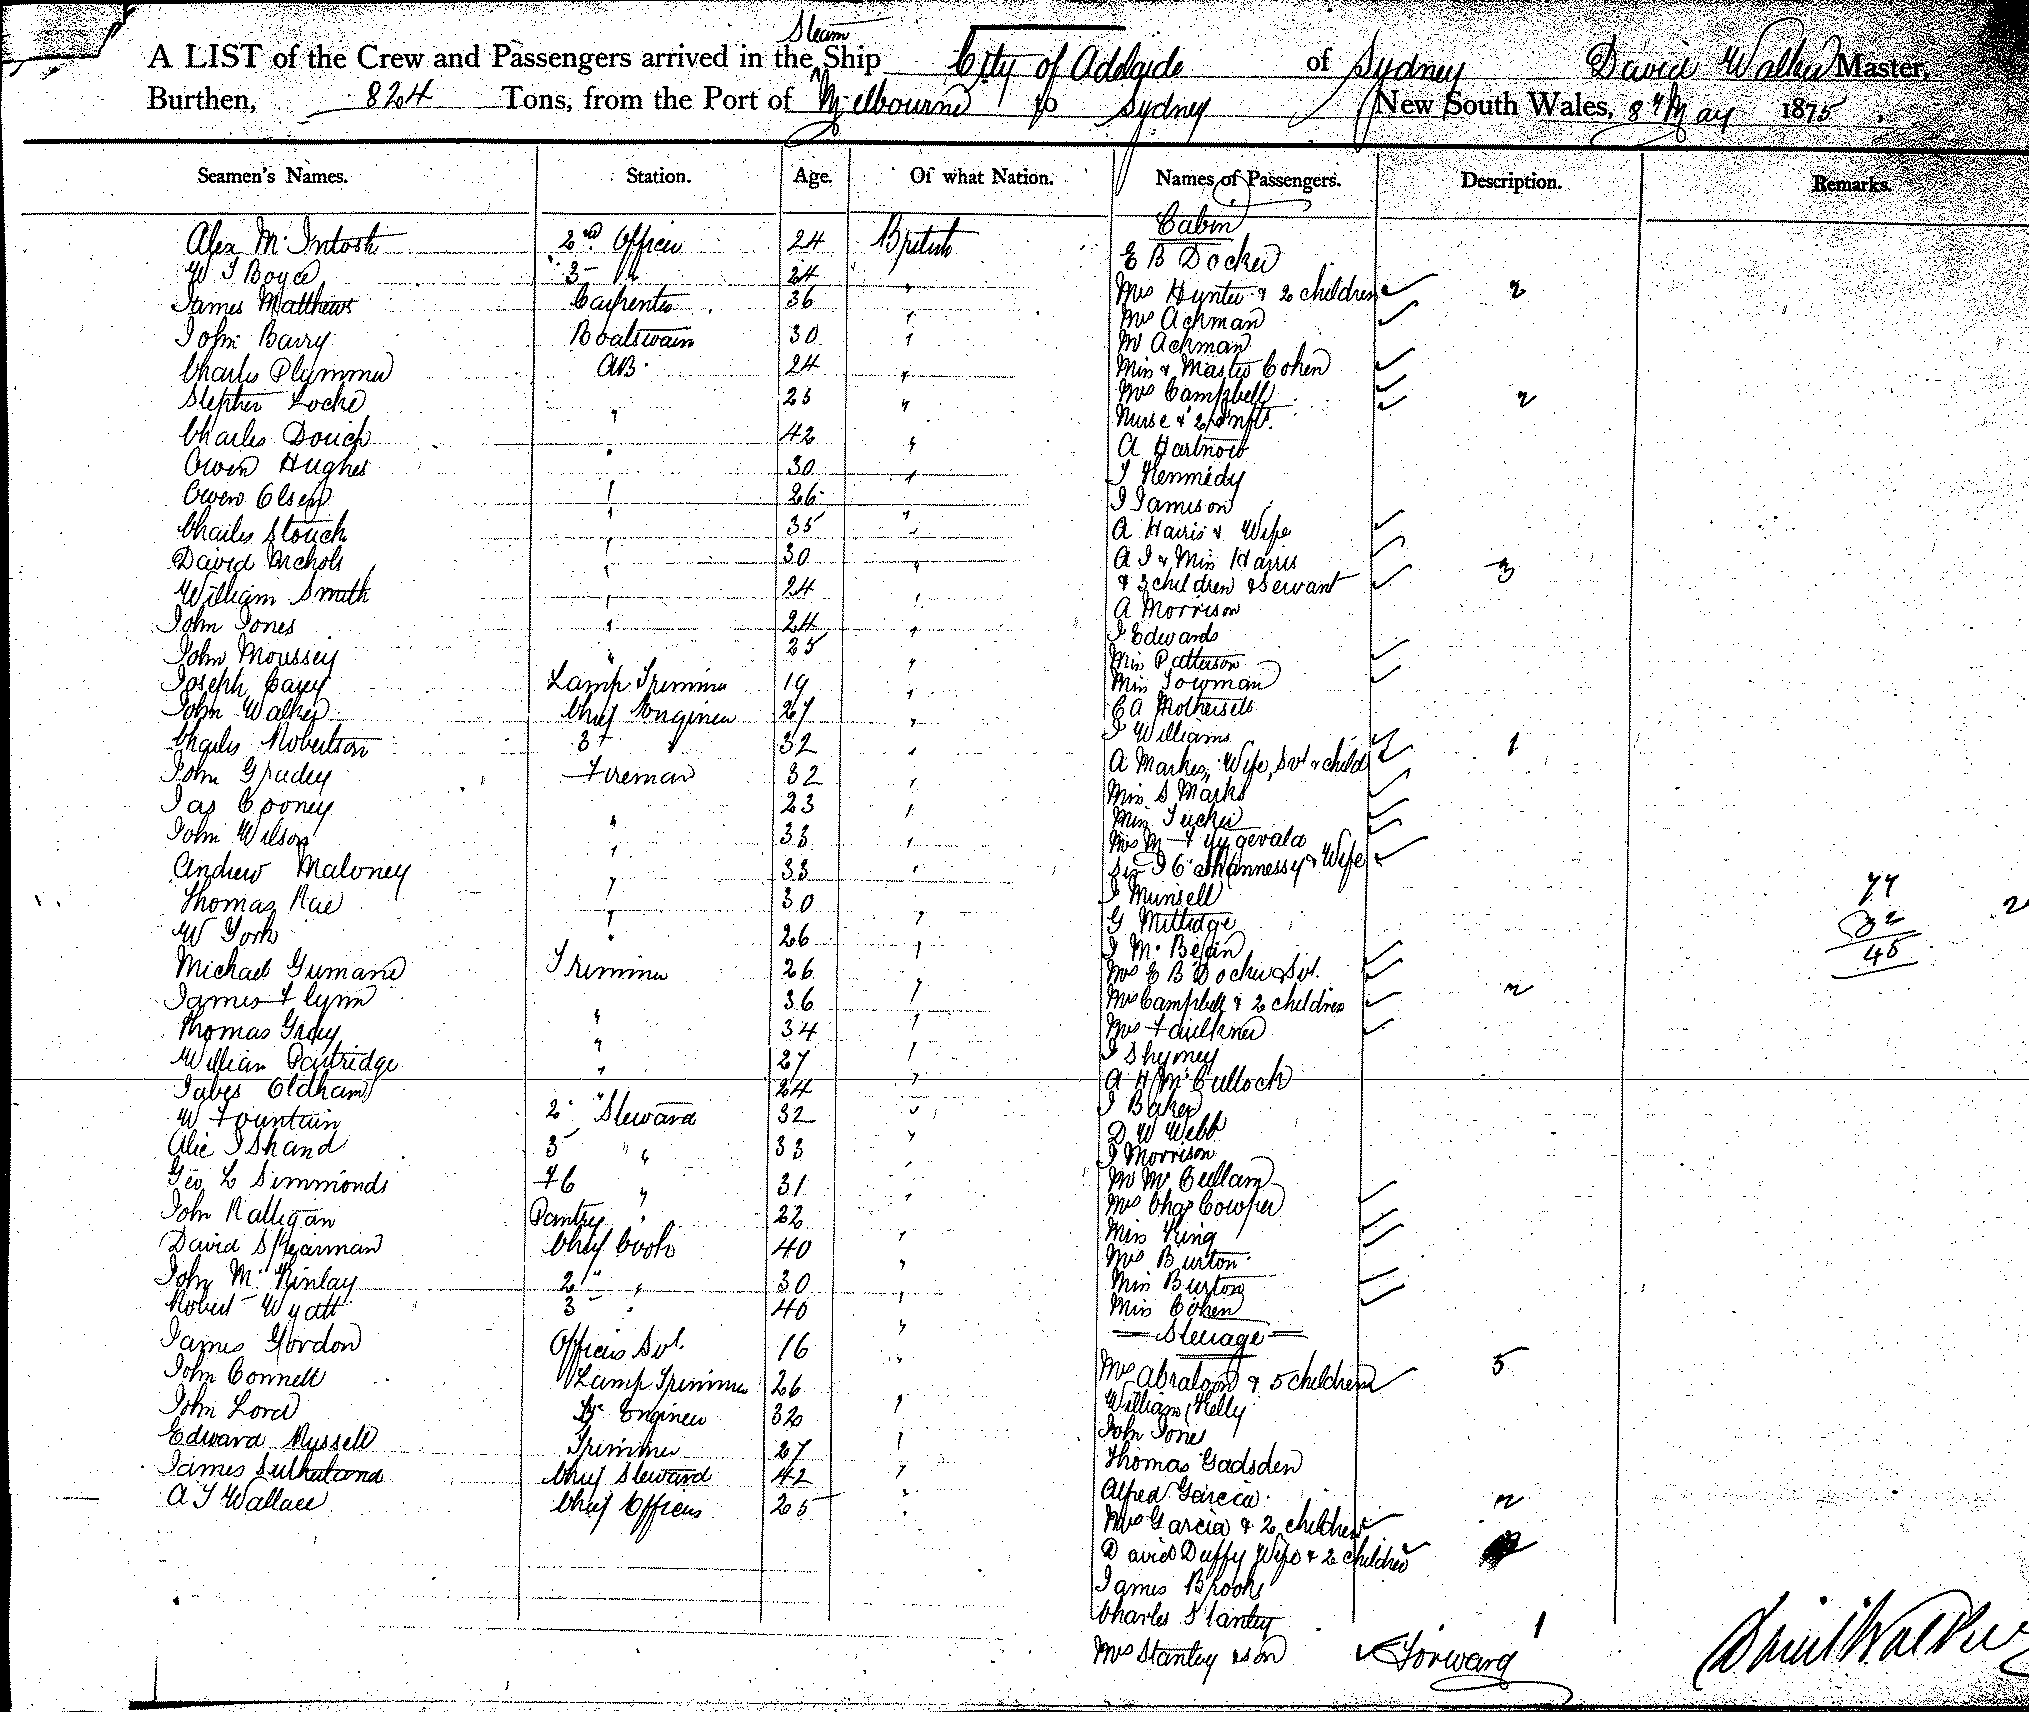 Steam
A LIST of the Crew and Passengers arrived in the Ship City of Adelaide of Sydney David Walker Master,
Burthen, 824 Tons, from the Port of Melbourne to Sydney New South Wales, 8th May 1875
Seamen's Names. Station. Age. Of what Nation. Names of Passengers. Description. Remarks.
Alex McIntosh 2nd Officer 24 British
W J Boyce 3 " 24 "
James Matthews Carpenter 36 "
John Barry Boatswain 30 "
Charles Plymmer AB 24 "
Stephen Locke " 25 "
Charles Douch " 42 "
Owen Hughes " 30 "
Owen Olsen " 26 "
Charles Stouch " 35 "
David Nichols " 30 "
William Smith " 24 "
John Jones " 24 "
John Moussey " 25 "
Joseph Casey Lamp Trimmer 19 "
John Walker Chief Engineer 27 "
Charles Robertson 3 " 32 "
John Gradey Fireman 32 "
Jas Cooney " 23 "
John Wilson " 33 "
Andrew Maloney " 33 "
Thomas Rae " 30 "
W York " 26 "
Michael Trimmer 26 "
James Flynn " 36 "
Thomas Gray " 34 "
William Partridge " 27 "
Jabes Oldham " 24 "
W Fountain 2 " Steward 32 "
Alic J Shand 3 " 33 "
Geo L Simmonds F C " 31 "
John Ralligan Pantry " 22 "
David Spearman Chief Cook 40 "
John McKinlay 2 " " 30 "
Robert Wyatt 3 " 40 "
James Gordon Officers Svt. 16 "
John Connell Lamp Trimmer 26 "
John Lord Engineer 32 "
Edward Russell Trimmer 27 "
James Sutherland Chief Steward 42 "
A J Wallace Chief Officer 25 "
Cabin
E B Docker
Mrs Hunter & 2 children 2
Mrs Achman
Mr Achman
Miss & Master Cohen
Mrs Campbell 2
Nurse & 2 Infts.
A Hartnow
J Kennedy
J Jamison
A Harris & Wife
A J & Miss Harris
& 3 children & Servant 3
A Morrison
J Edwards
Miss Patterson
Miss Towman
C A Mothersell
J Williams
A Markes, Wife, Svt & child 1
Miss S Marks
Miss Tucker
Mrs M
Sir J O'Shannessy & Wife
J Munsell
G Mittidge
J McBean
Mrs E B Docker & Svt.
Mrs Campbell & 2 children 2
Mrs Faulkner
J Shymey
A H McCulloch
J Baker
D W Webb
J Morrison
Mr McCullam
Mrs Chas Cowper
Miss King
Mrs Burton
Miss Burton
Miss Cohen
Steerage
Mrs Abraham & 5 children 5
William Kelly
John Jones
Thomas Gadsden
Alfred Garcia
Mrs Garcia & 2 children 2
David Duffy Wife & 2 children
James Brooks
Charles Stanley
Mrs Stanley & son 1
Forward
77
32
45
2
David Walker